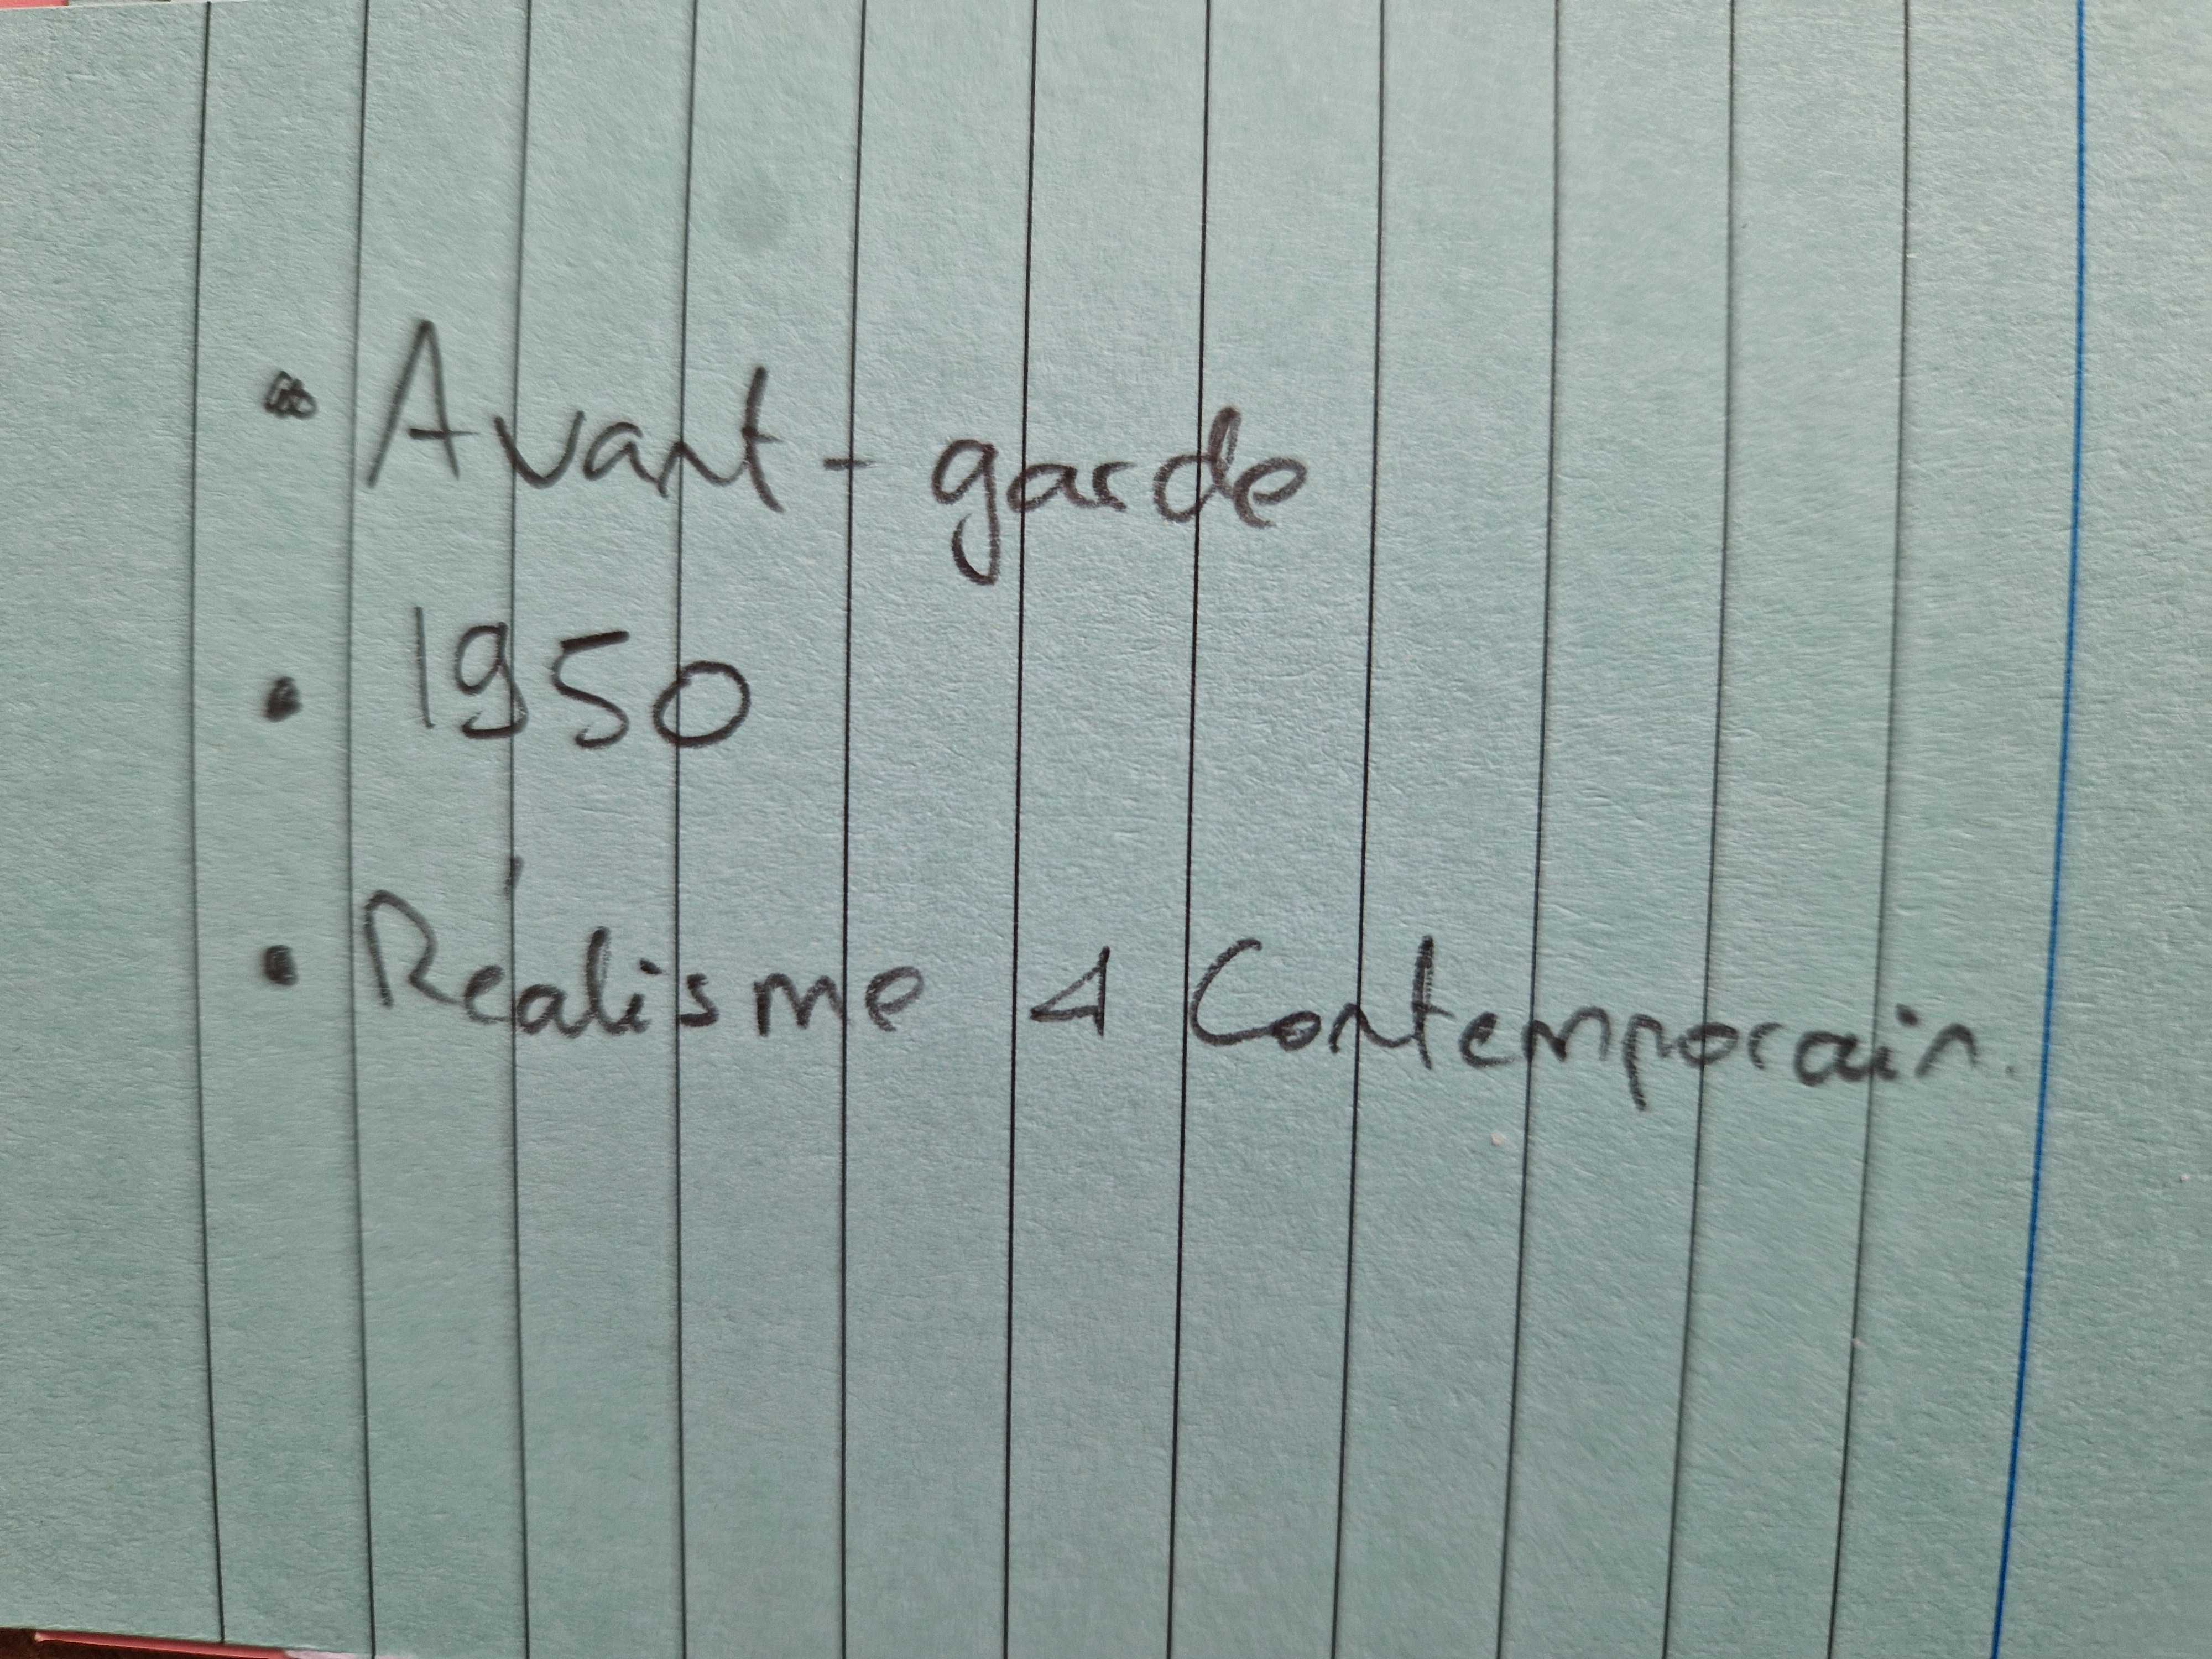 • Avant-garde
• 1950
• Réalisme & Contemporain.